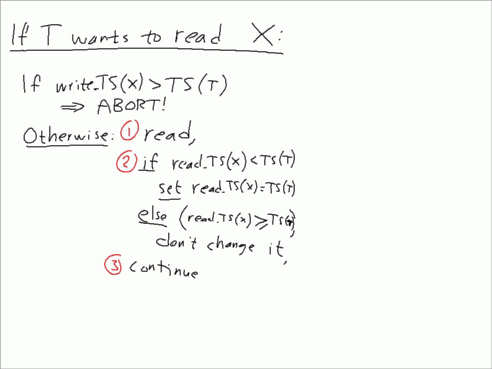 If T wants to read X:
If write_TS(x) > TS(T)
⇒ ABORT!
Otherwise: ① read,
② if read_TS(x) < TS(T)
set read_TS(x)=TS(T)
else (read_TS(x) ≥ TS(T),
don't change it,
③ continue